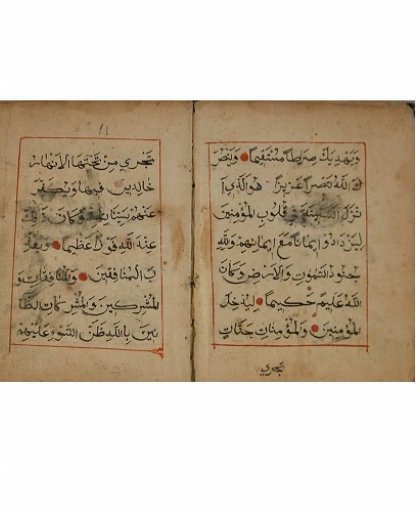 ويهديك صراطا مستقيما وينصر
ك الله نصرا عزيزا هو الذي ا
نزل السكينة في قلوب المؤمنين
ليزدادوا ايمانا مع ايمانهم ولله
جنود السموات والارض وكان
الله عليما حكيما ليدخل
المؤمنين والمؤمنات جنات
تجري
١١
تجري من تحتها الانهار
خالدين فيها ويكفر
عنهم سيئاتهم وكان ذلك
عند الله فوزا عظيما ويعذ
ب المنافقين والمنافقات و
المشركين والمشركات الظا
نين بالله ظن السوء عليهم